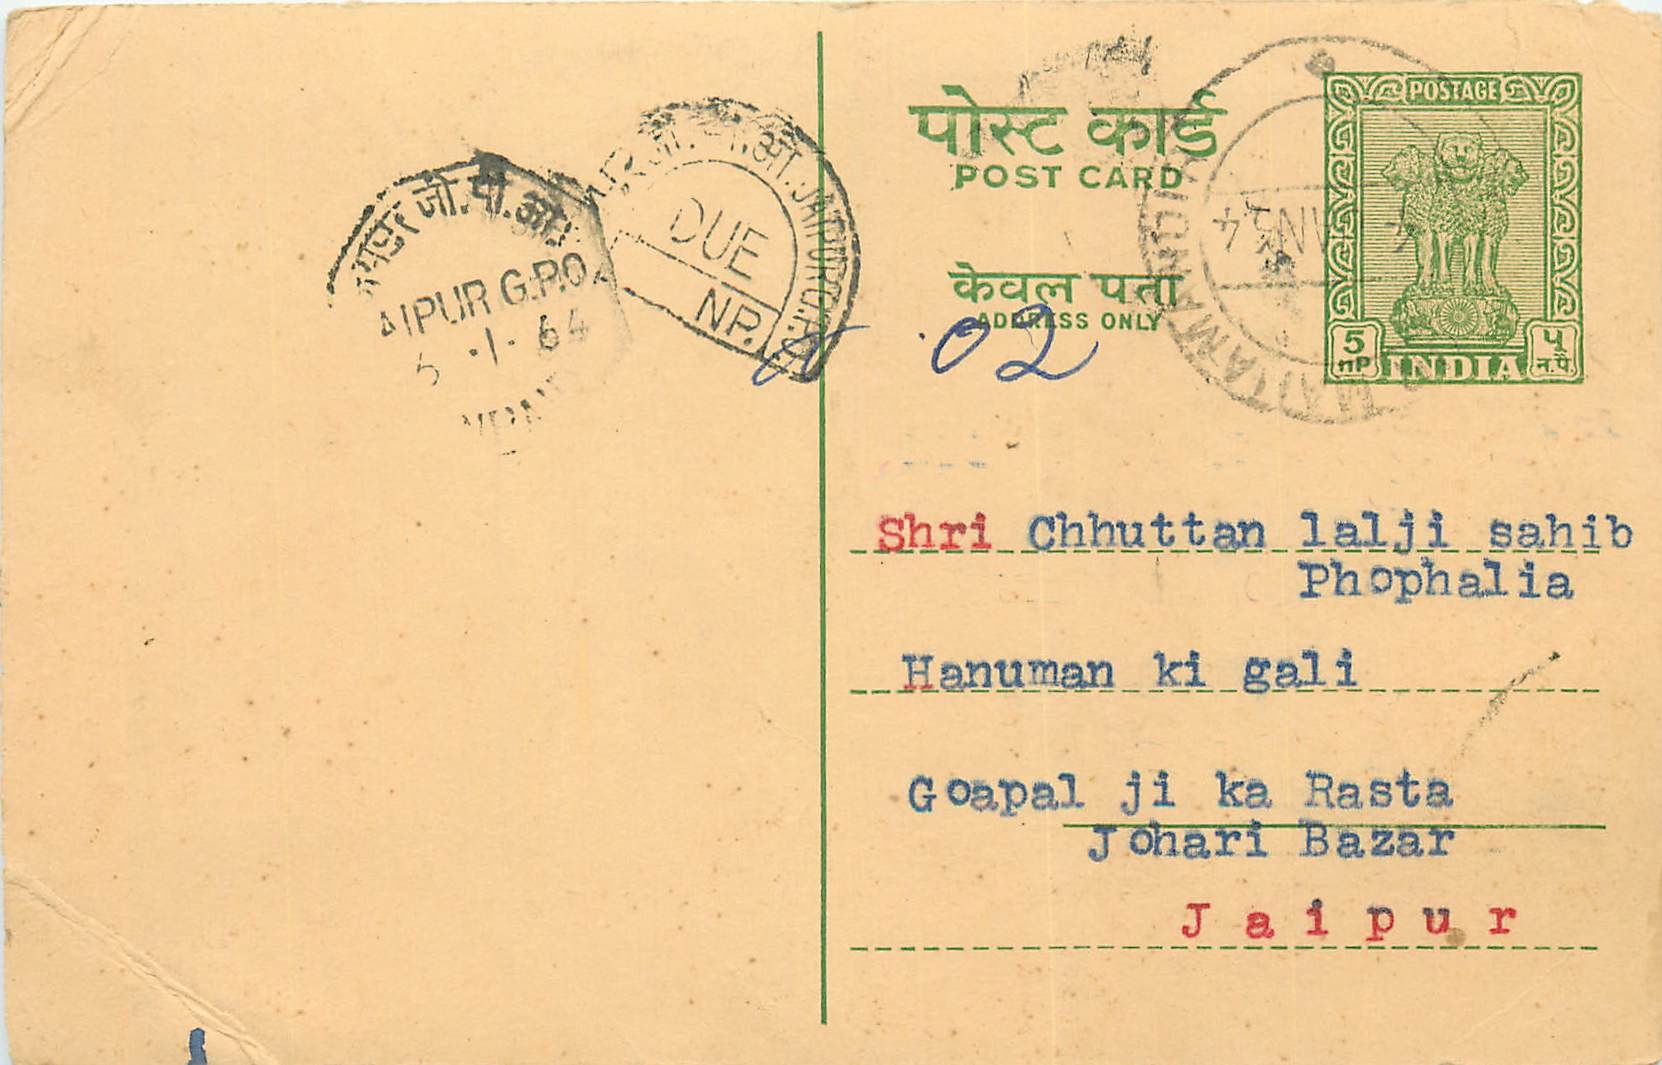 पोस्ट कार्ड
POST CARD
केवल पता
ADDRESS ONLY
POSTAGE
5
nP
INDIA
५
न.पै.
जी.पी.ओ.
AIPUR G.P.O.
-1-64
जी. .ओ. JAIPUR G.P.
DUE
NP.
02
Shri Chhuttan lalji sahib
Phophalia
Hanuman ki gali
Goapal ji ka Rasta
Johari Bazar
Jaipur